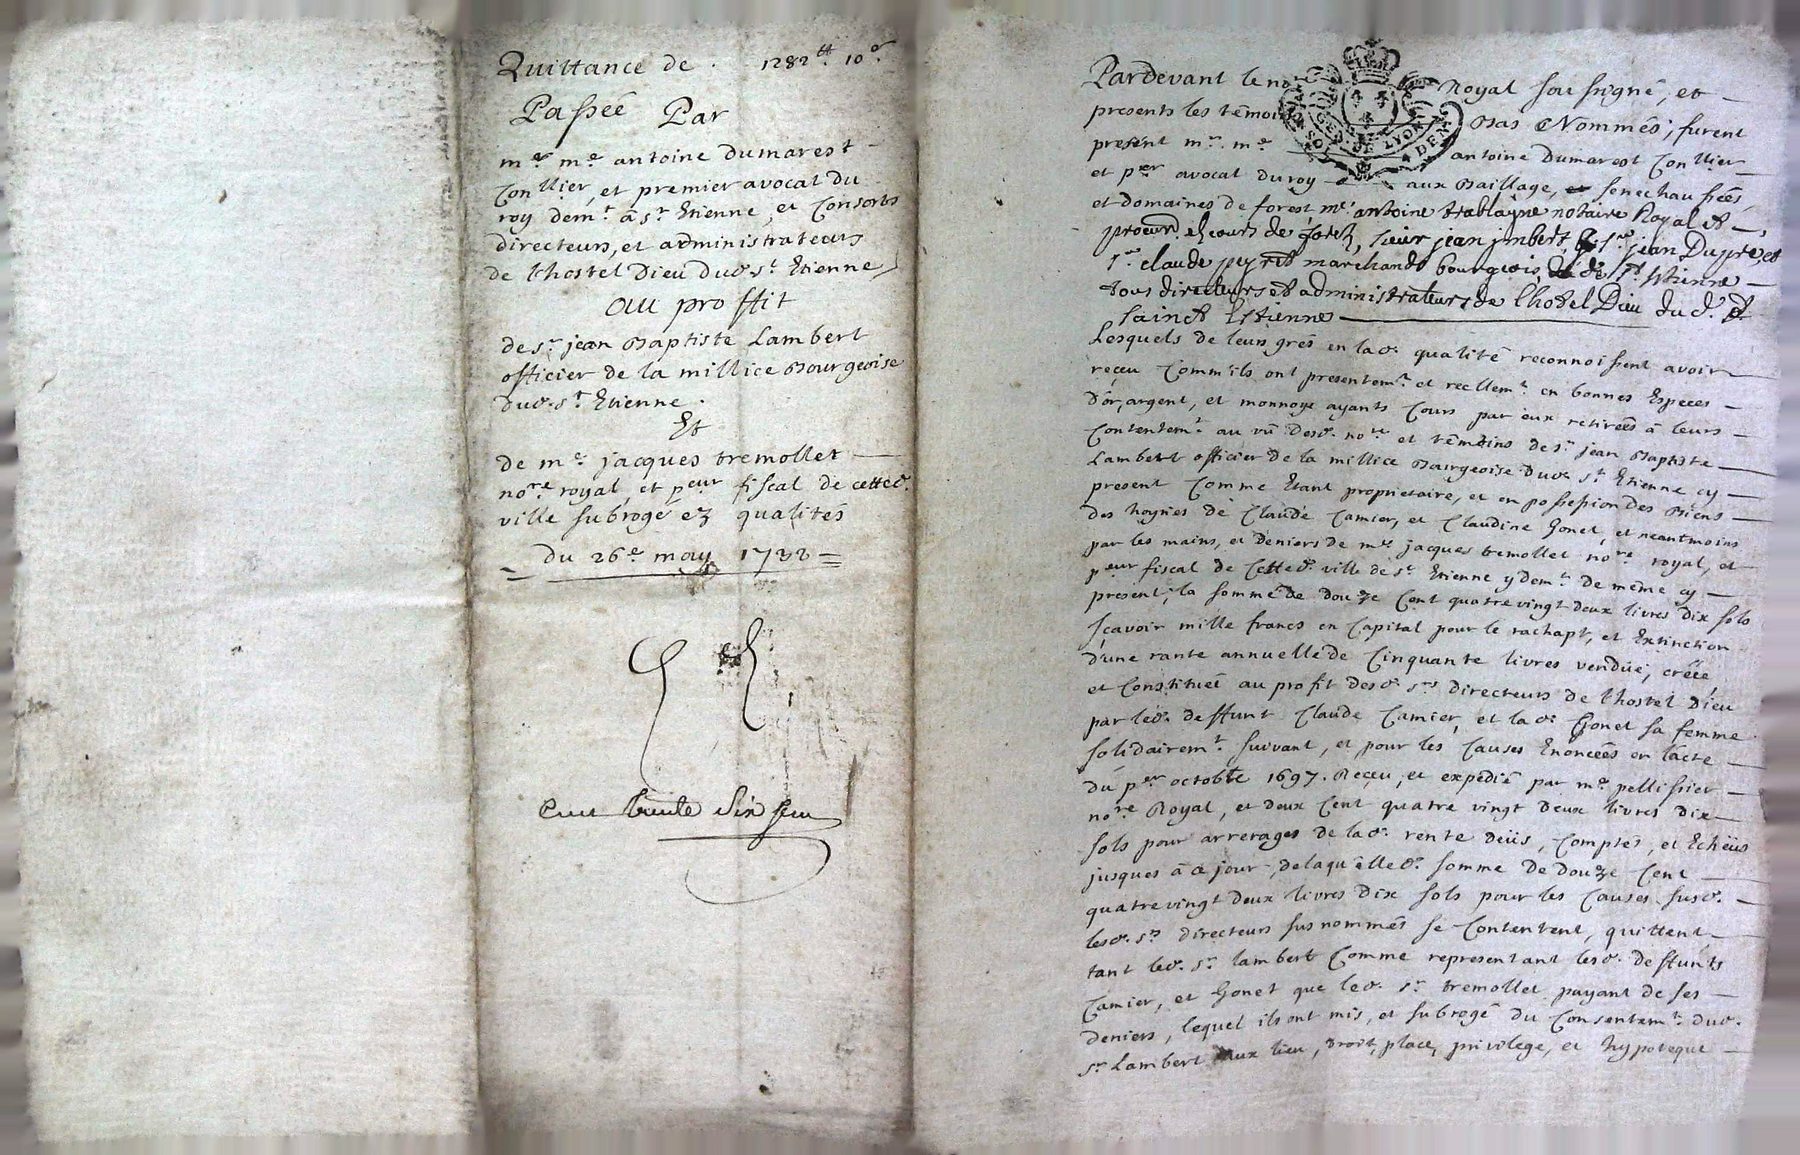 Quittance de . 1282 tt 10 s
Passée Par
mr. me. antoine dumarest
Conllier, et premier avocat du
roy demt. à st. Etienne, et Consorts
directeurs, et administrateurs
de lhostel Dieu dud. st. Etienne
au proffit
de sr. jean Baptiste Lambert
officier de la millice Bourgeoise
dud. st. Etienne.
Et
de me. jacques tremollet
nore. royal, et peur fiscal de cetted.
ville subrogé ez qualités
du 26e. may 1733
Cent trente Six
Pardevant le no Royal soussigné, et
presents les témoins Bas Nommés, furent
present mr. me. antoine Dumarest Conllier
et per avocat du roy aux Baillage, senechaussées,
et domaines de forest me. antoine Hablayne notaire Royal et
procur. ez cours de forez, sieur jean jmbert, sr. jean Dupré, et
sr. claude peyret marchands bourgeois de st. Etienne
tous directeurs et administrateurs de lhotel Dieu dud.
Sainct Estienne
Lesquels de leurs grés en lad. qualité reconnoissent avoir
reçeu Comm'ils ont presentemt. et reellemt. en bonnes Especes
D'or, argent, et monnoye ayants Cours par eux retirées à leurs
Contentemt. au vû desd. nore et témoins de sr. jean Baptiste
Lambert officier de la millice Bourgeoise dud. st. Etienne cy
present Comme Etant proprietaire, et en possession des Biens
des hoyries de Claude Camier, et Claudine Gonet, et neantmoins
par les mains, et deniers de me. jacques tremollet nore. royal, et
peur fiscal de Cetted. ville de st. Etienne y demt. de même cy
present, la somme de Douze Cent quatre vingt deux livres dix sols
sçavoir mille francs en Capital pour le rachapt, et Extinction
d'une rante annuelle de Cinquante livres vendüe, créée
et Constituée au profit desd. srs directeurs de lhostel Dieu
par led. deffunt Claude Camier, et lad. Gonet sa femme
solidairemt. suivant, et pour les Causes Enoncées en l'acte
du per octobre 1697. Reçeu, et expedié par me. pellissier
nore Royal, et deux Cent quatre vingt deux livres dix
sols pour arrerages de lad. rente deüs, Comptés, et Echeüs
jusques à ce jour, de laquelle d. somme de douze Cent
quatre vingt deux livres Dix sols pour les Causes susd.
lesd. srs directeurs sus nommés se Contentent, quittent
tant led. sr. lambert Comme representant lesd. deffunts
Camier, et Gonet que led. sr. tremollet payant de ses
deniers, lequel ils ont mis, et subrogé du Consentemt. dud.
sr. Lambert aux lieu, droit, place, privilege, et hypoteque